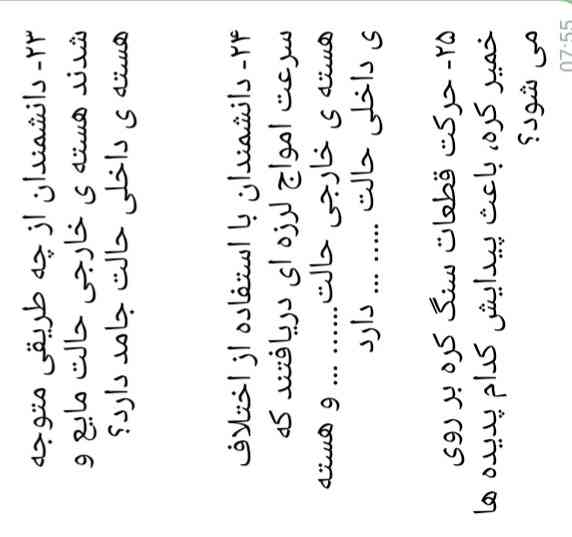 07:55
۲۳- دانشمندان از چه طریقی متوجه
شدند هسته ی خارجی حالت مایع و
هسته ی داخلی حالت جامد دارد؟
۲۴- دانشمندان با استفاده از اختلاف
سرعت امواج لرزه ای دریافتند که
هسته ی خارجی حالت....... ... و هسته
ی داخلی حالت ..... ... دارد
۲۵- حرکت قطعات سنگ کره بر روی
خمیر کره، باعث پیدایش کدام پدیده ها
می شود؟